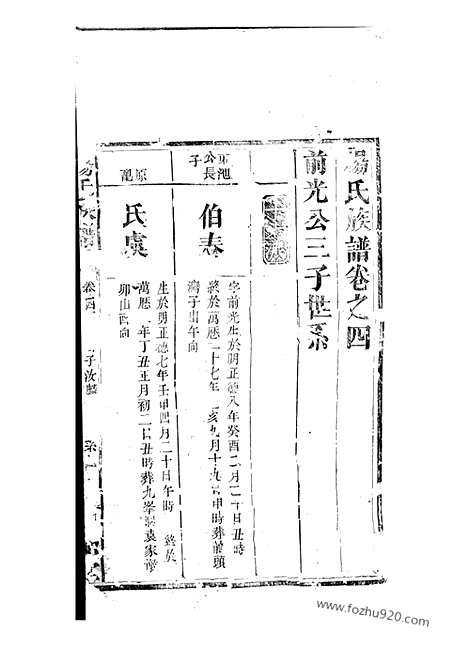 楊氏族譜卷之四
前光公三子世系
東池公長子
伯春
字前光生於明正德八年癸酉二月二十日丑時
終於萬曆二十七年亥九月十九日申時葬前頭
灣子山午向
原配
氏虞
生於明正德七年壬申四月二十日午時 終於
萬曆年丁丑正月初二日丑時葬九峯袁家
卯山酉向
楊氏族譜
卷四
子汝
www.fozhu920.com